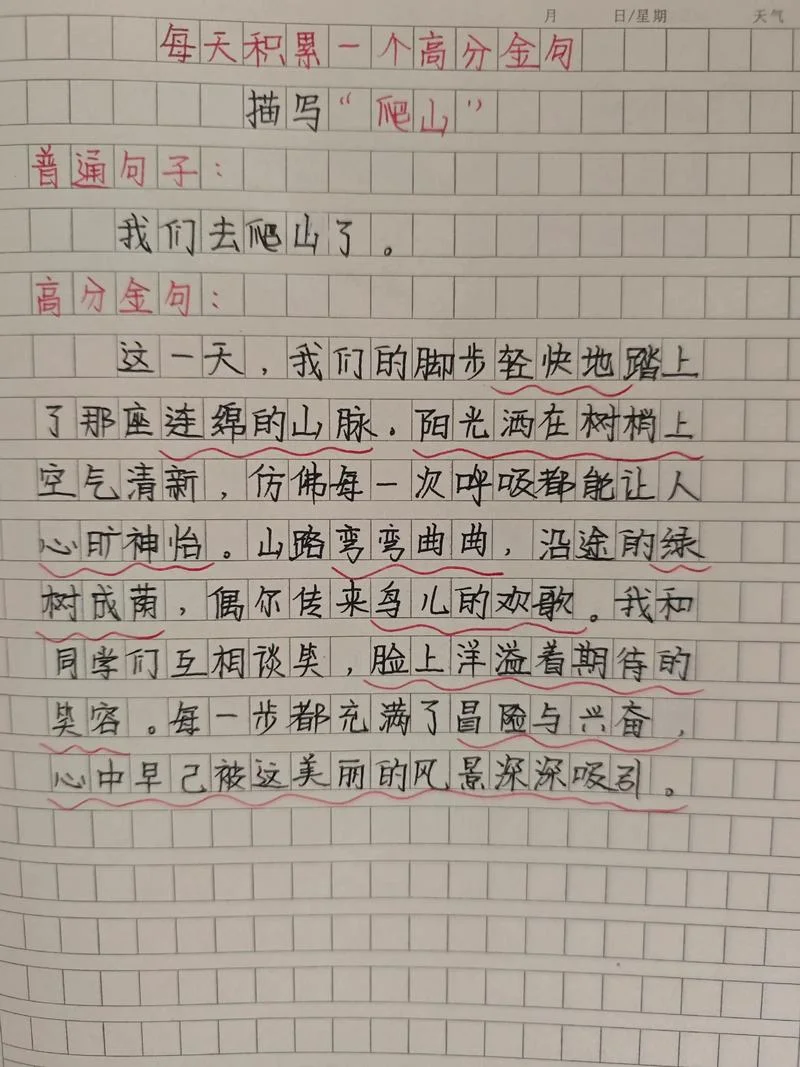 月 日/星期 天气
每天积累一个高分金句
描写“爬山”
普通句子：
我们去爬山了。
高分金句：
这一天，我们的脚步轻快地踏上
了那座连绵的山脉．阳光洒在树梢上
空气清新，仿佛每一次呼吸都能让人
心旷神怡。山路弯弯曲曲，沿途的绿
树成荫，偶尔传来鸟儿的欢歌。我和
同学们互相谈笑，脸上洋溢着期待的
笑容。每一步都充满了冒险与兴奋，
心中早已被这美丽的风景深深吸引。